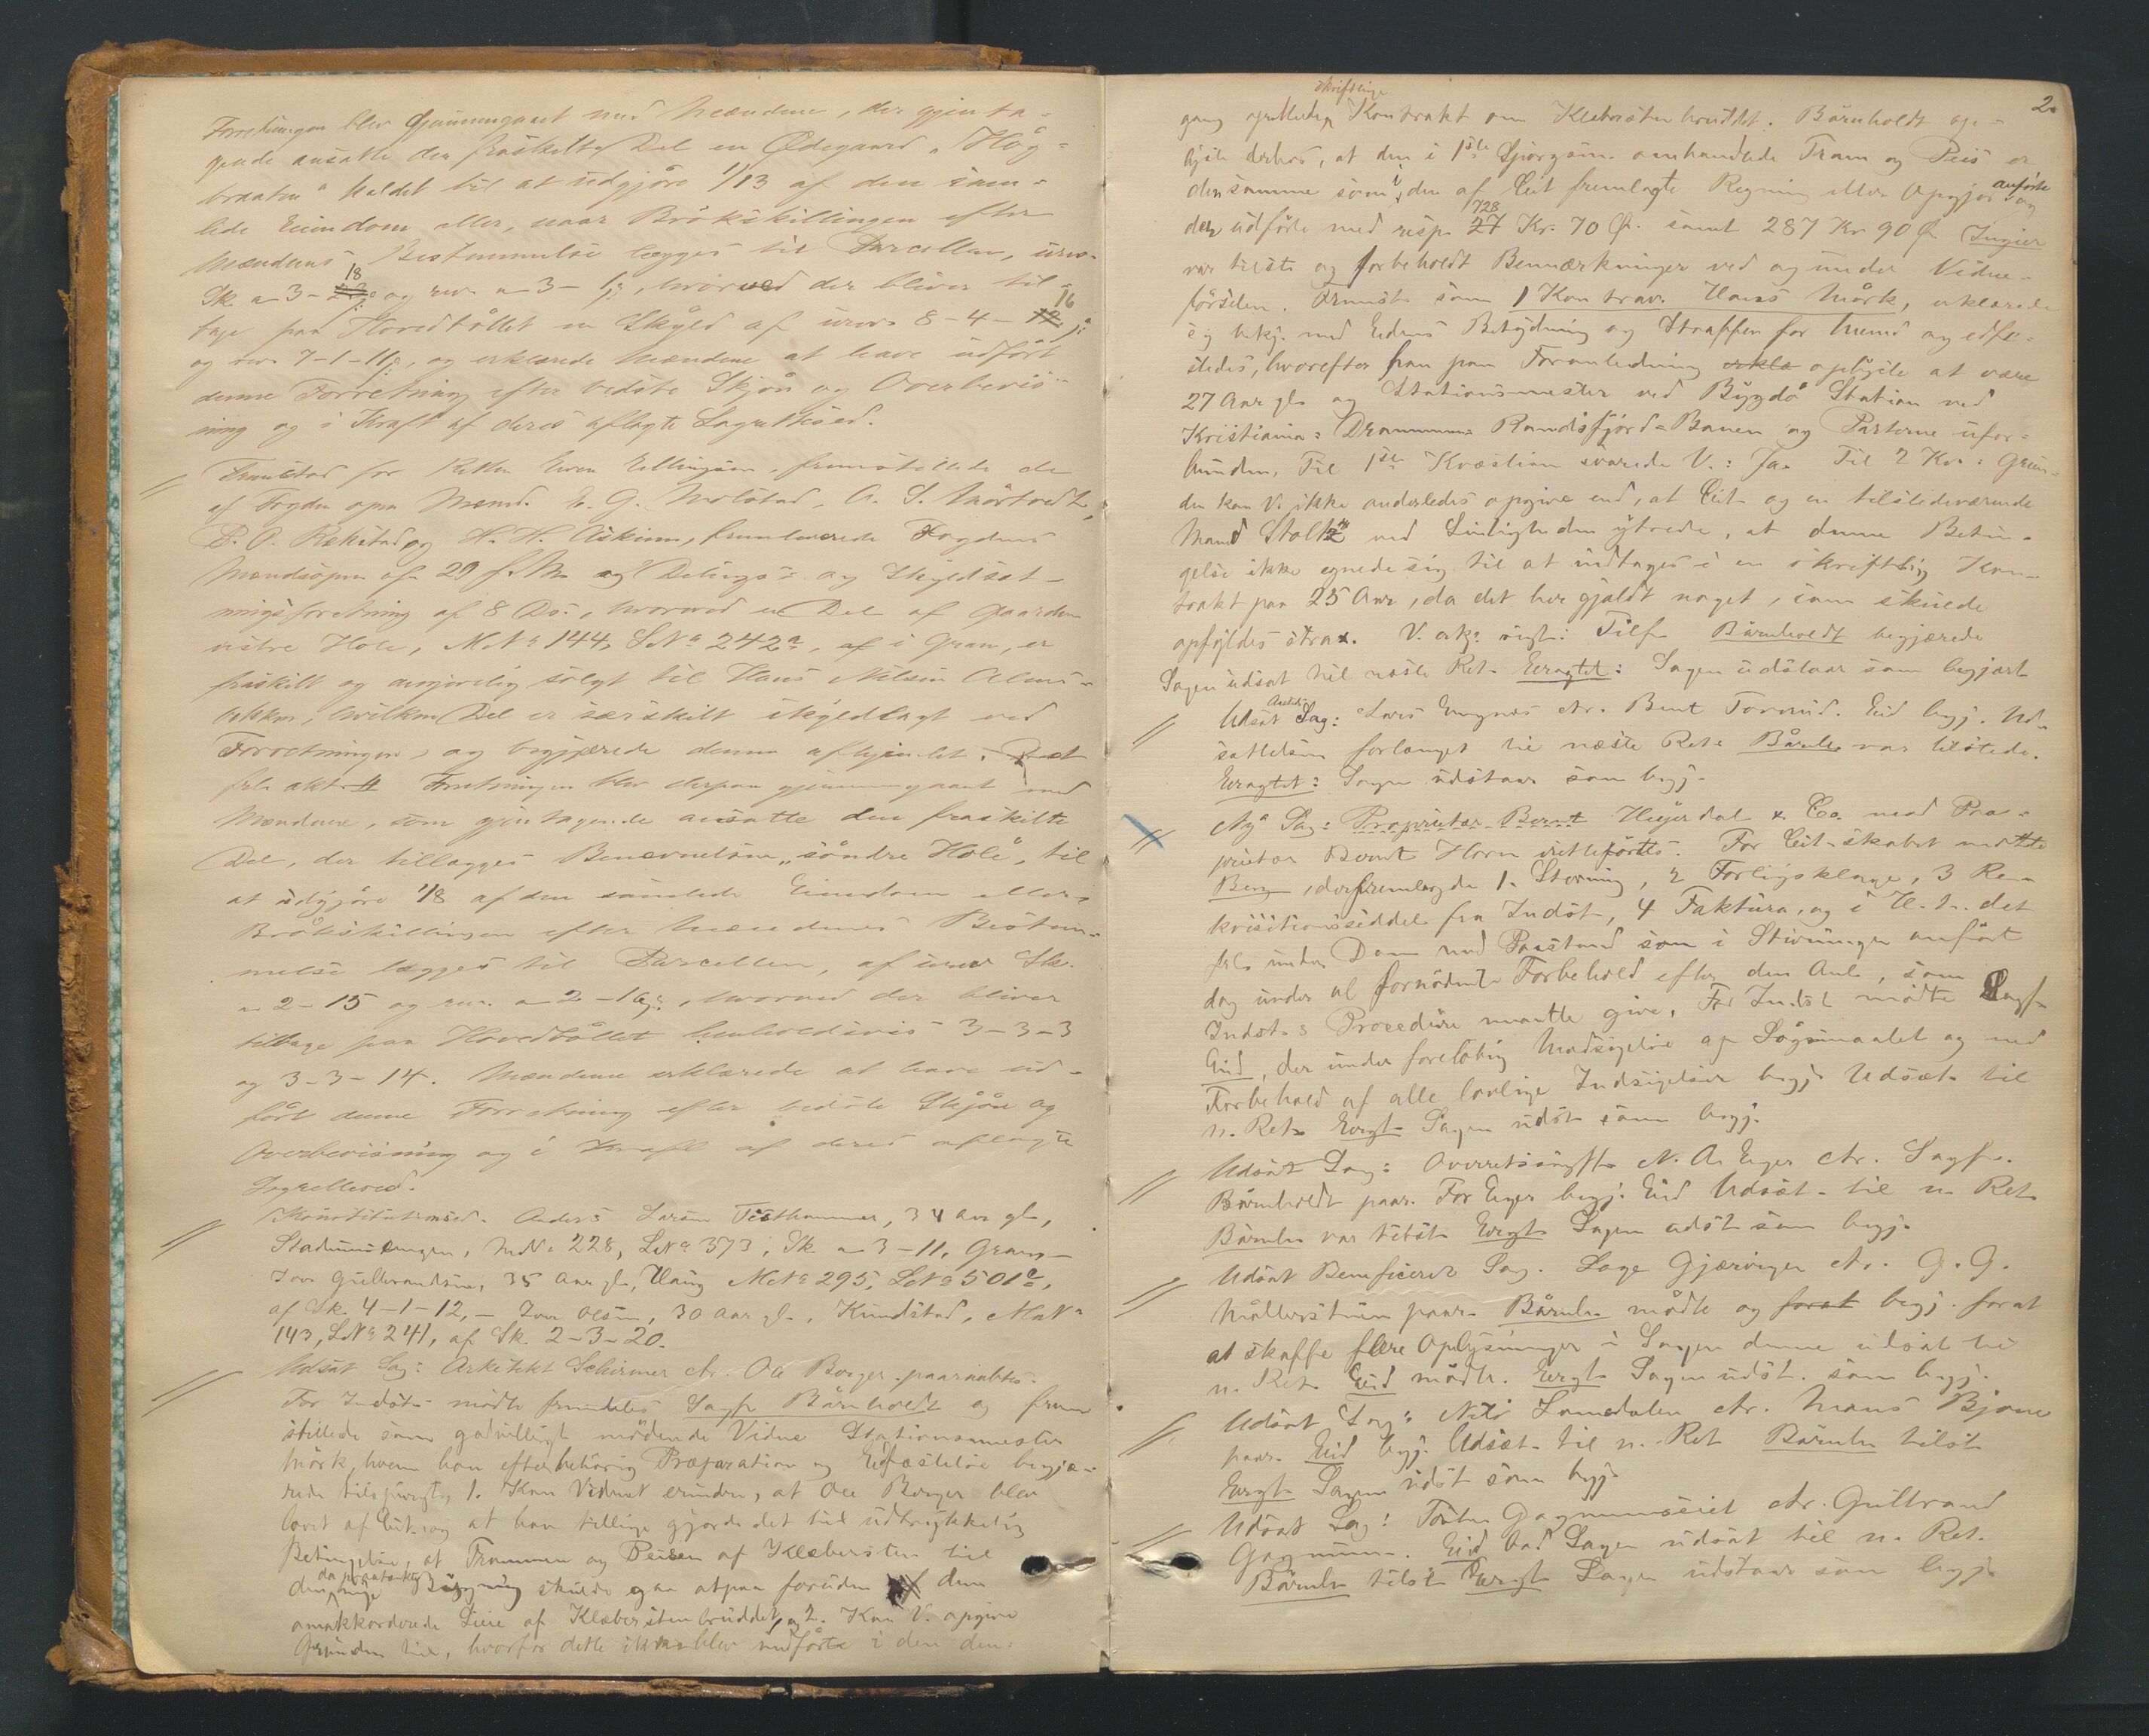 Forretningen blev gjennemgaaet med Mændene, der gjenta-
gende ansatte den fraskilte Del en Ødegaard „Hög-
braaten" kaldet til at udgjöre 1/13 af den sam-
lede Eiendom eller, naar Brökskillingen efter
Mændenes Bestemmelse lægges til Parcellen, urev.
Sk. a 3 - 18 og rev. a 3 - 1, hvorved der bliver til-
bage paa Hovedböllet en Skyld af urev. 8-4-16
og rev. 7-1-11, og erklærede Mændene at have udfört
denne Forretning efter bedste Skjön og Overbevis-
ning og i Kraft af deres aflagte Lagrettesed.
Fremstod for Retten Even Ellingsen, fremstillede de
af Fogden opn. Mænd. G. Molstad, A. S.
P. P. Rækstad og H. H. Askim, fremlagde Fogdens
Mændsopn. af 29 f. M. og Delings- og Skyldsæt-
ningsforretning af 8 Ds., hvorved en Del af Gaarden
nitre Hole, M.No 144, L.No 242a, i Gran, er
fraskilt og angivelig solgt til Hans Nilsen Alms-
bakken, hvilken Del er særskilt skyldlagt ved
Forretningen, og begjærede denne afhjemlet.
Forretningen blev derpaa gjennemgaaet med
Mændene, som gjentagende ansatte den fraskilte
Del, der tillægges Benævnelsen „söndre Hole", til
at udgjöre 1/8 af den samlede Eiendom eller,
Brökskillingen efter Mændenes Bestem-
melse lægges til Parcellen, af urev. Sk.
a 2-15 og rev. a 2-16, hvorved der bliver
tilbage paa Hovedböllet henholdsvis 3-3-3
og 3-3-14. Mændene erklærede at have ud-
fört denne Forretning efter bedste Skjön og
Overbevisning og i Kraft af deres aflagte
Lagrettesed.
Konstitutionsed. Anders Larsen Tisthammer, 34 Aar gl.,
Stadumsengen, M.No 228, L.No 373, Sk. a 3-11, Gran,
Iver Gulbrandsen, 35 Aar gl., Haug M.No 295, L.No 501c,
af Sk. 4-1-12, - Iver Olsen, 30 Aar gl., Kundstad, M.No
143, L.No 241, af Sk. 2-3-20.
Udsat Sag: Arkitekt Schirmer ctr. Ole Borger paaraabtes.
For Indst. mödte fremdeles Sagf. Bärnholdt og frem
stillede som godvilligt mödende Vidne Stationsmester
Mörk, hvem han efter behörig Præparation og Edfæstelse begjæ-
rede tilspurgt, 1. Kan Vidnet erindre, at Ole Borger blev
lovet af Cit. og at han tillige gjorde det til udtrykkelig
Betingelse, at Trammen og Peisen af Klebersten til
den da paatænkte nye Bygning skulde gaa atpaa foruden den
omakkorderede Leie af Klæberstenbruddet, og 2. Kan V. opgive
Grunden til, hvorfor dette ikke blev medförte i den den-
2.
gang oprettede skriftlige Kontrakt om Klæberstenbruddet. Bärnholdt op-
lyste derhos, at den i 1ste Spörgsm. omhandlede Tram og Peis er
den samme som i den af Cit. fremlagte Regning eller Opgjör anförte og
der udförte med resp. 728 Kr. 70 Ø. samt 287 Kr. 90 Ø. Ingier
var tilst. og forbeholdt Bemærkninger ved og under Vidne-
förselen. Fremst. som 1 Kontrav. Hans Mörk, erklærede
sig bekj. med Edens Betydning og Straffen for Mened og edfæ-
stedes, hvorefter han paa Foranledning erkla oplyste at være
27 Aar gl. og Stationsmester ved Bygdö Station ved
Kristiania-Drammens-Randsfjord-Banen og Parterne ufor-
bunden. Til 1ste Kvæstion svarede V.: Ja. Til 2 Kv.: Grun-
den kan V. ikke anderledes opgive end, at Cit. og en tilstedeværende
Mand Stoltz ved Leiligheden ytrede, at denne Betin-
gelse ikke egnede sig til at indtages i en skriftlig Kon-
trakt paa 25 Aar, da det her gjaldt noget, som skulde
opfyldes strax. Bärnholdt begjærede
Sagen udsat til næste Ret. Eragtet: Sagen udstaar som begjært
Udsat Sag: Lars Engnæs ctr. Bent Tormid. Eid begj. Ud-
sættelsen forlænget til næste Ret. Bärnh. var tilstede.
Eragtet: Sagen udstaar som begj.
Ny Sag: Proprietær Bernt Heyerdal & Co. mod Pro-
prietær Bernt Horn iretteförtes. For Cit.skabet mödte
Berg, der fremlagde 1. Stevning, 2 Forligsklage, 3 Re-
kvisitionsseddel fra Indst., 4 Faktura, og i H. t. det
frl. under Dom med Paastand som i Stevningen anfört
dog under al fornödent Forbehold efter den Anl., som
Indst.s Procedure maatte give. For Indst. mödte Sagf.
Eid, der under foreløbig Modsigelse af Sögsmaalet og med
Forbehold af alle lovlige Indsigelser begj. Udsæt. til
n. Ret. Eragt. Sagen udst. som begj.
Udsat Sag: Overretssagf. N. A. Eger ctr. Sagf.
Bärnholdt paar. For Eger begj. Eid Udsæt. til n. Ret.
Bärnh. var tilst. Eragt. Sagen udst. som begj.
Udsat Beneficeret Sag. Lage Gjærvigen ctr. G. G.
Möllerstuen paar. Bärnh. mödte og forat begj. for at
at skaffe flere Oplysninger i Sagen denne udsat til
n. Ret. Eid mödte. Eragt. Sagen udst. som begj.
Udsat Sag: Nils Lomsdalen ctr. Hans Bjone
paar. Eid begj. Udsæt. til n. Ret. Bärnh. tilst.
Eragt. Sagen udst. som begj.
Udsat Sag: Gagnumseiet ctr. Gulbrand
Gagnum. Eid bad Sagen udsat til n. Ret.
Bärnh. tilst. Eragt. Sagen udstaar som begj.